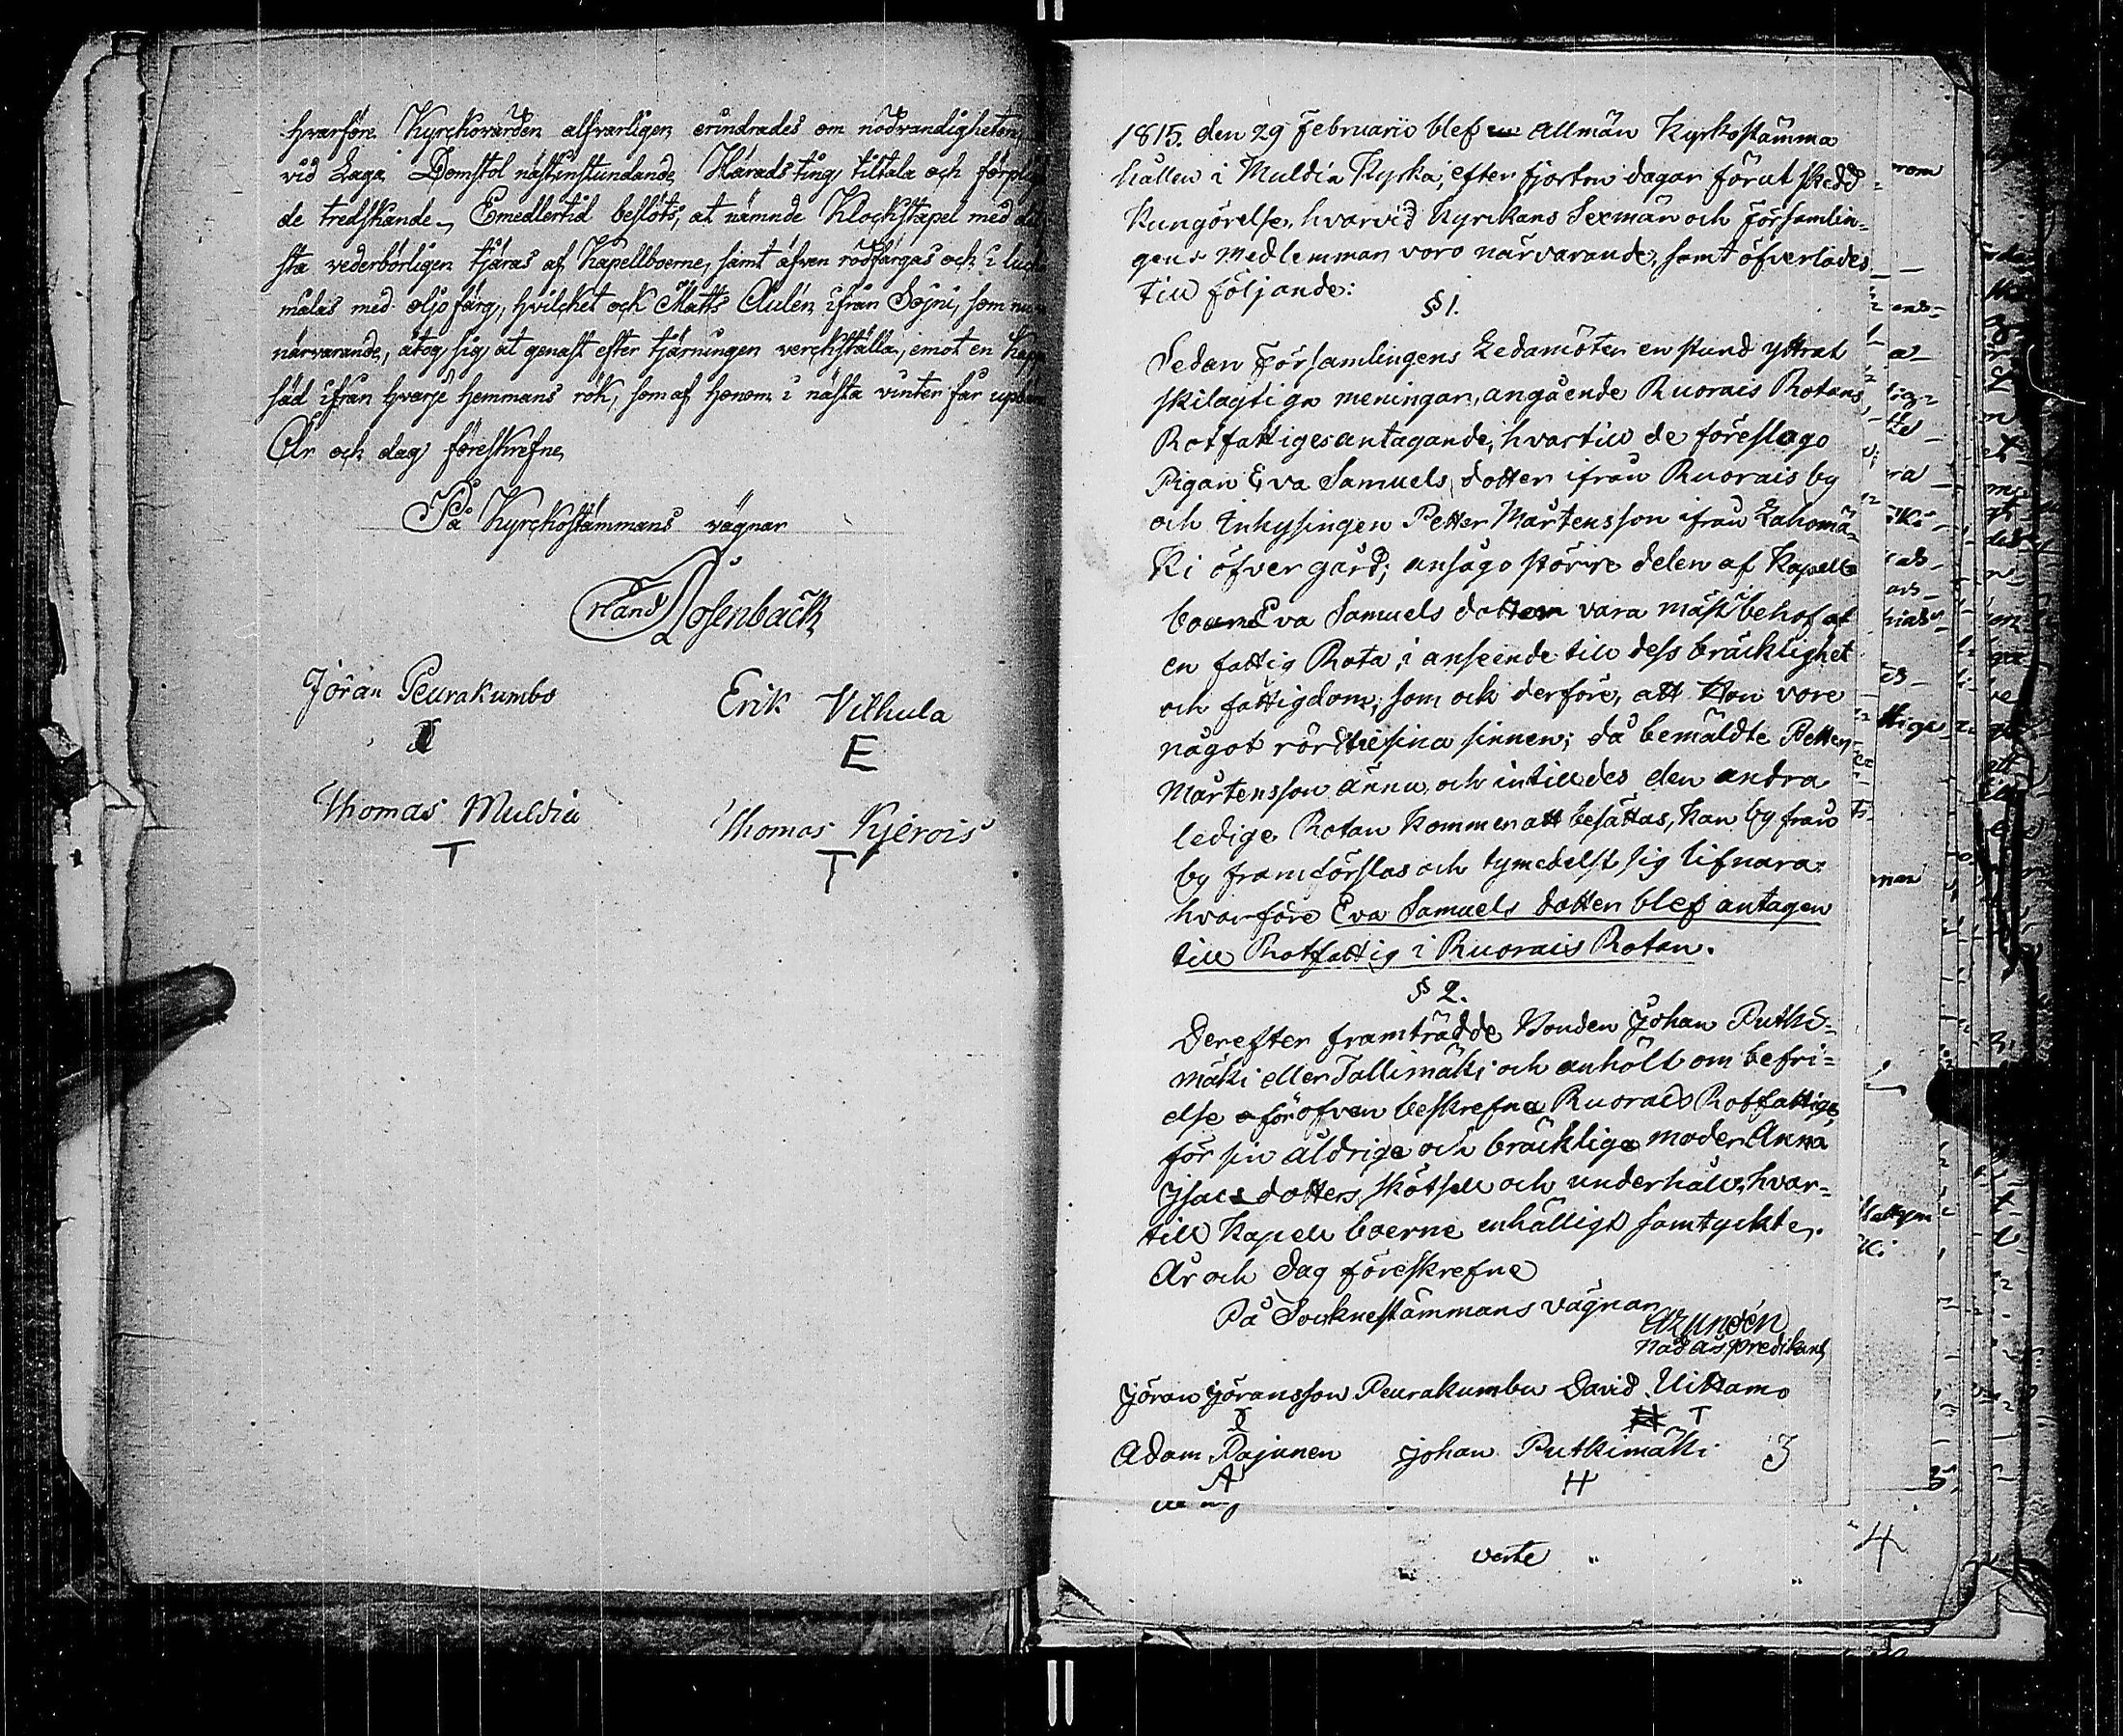 hvarföre Kyrckovärden alfvarligen erindrades om nödvändigheten,
vid Laga Domstol nästinstundande Härads ting tiltala och
de tredskande. Emedlertid beslöts, at nämnde Klockstapel med
sta vederbörligen tjäras af Kapellboerne, samt äfven rödfärgas och i
målas med oljofärg, hvilcket ock Matts Aulén ifrån Sojni, som
närvarande, åtog sig at genast efter tjärningen verckställa, emot en
säd ifrån hvarje hemmans rök, som af honom i nästa vinter får
År och dag föreskrefne
På Kyrckostämmans vägnar
Rosenbäck
Jöran Peurakumbo
Erik Vilhula
E
Thomas Muldia
T
Thomas Kjerois
T
1815. den 29 Februarii blef Allmän Kyrkostämma
hållen i Muldia Kyrka, efter fjorton dagar förut skedd
Kungörelse, hvarvid Kyrckans Sexmän och Församlin-
gens Medlemmar voro närvarande, samt öfverlades
till följande:
§ 1.
Sedan Församlingens Ledamöter en stund yttrat
skilagtiga meningar, angående Ruorais Rotans
Rotfattiges antagande, hvartill de föreslogo
Pigan Eva Samuels dotter ifrån Ruorais by
och Inhysingen Petter Mårtensson ifrån Lahomä-
ki öfver gård; ansågo större delen af Kapell
boerne Eva Samuels dotter vara mäst behof af
en fattig Rota, i anseende till dess bräcklighet
och fattigdom, som ock derföre, att Hon vore
något rörd till sina sinnen; då bemäldte Petter
Mårtensson ännu, och intill des den andra
ledige Rotan kommer att besättas, kan by från
by framförslas och lymedelst sig lifnära:
hvarföre Eva Samuels dotter blef antagen
till Rotfattig i Ruorais Rotan.
§ 2.
Derefter framträdde Bonden Johan Putki-
mäki eller Tallimäki och anhölt om befri-
else för ofvan beskrefne Ruorais Rotfattige,
för sin åldriga och bräckliga moder Anna
Isacs dotters skötsell och underhåll, hvar-
till Kapell boerne enhälligt samtyckte.
År och dag föreskrefne
På Socknestämmans vägnar
Nådårs predikant
Jöran Jöransson Peurakumbu David Uittamo
T
Adam Pajunen Johan Putkimäki 3
A H
verte
4